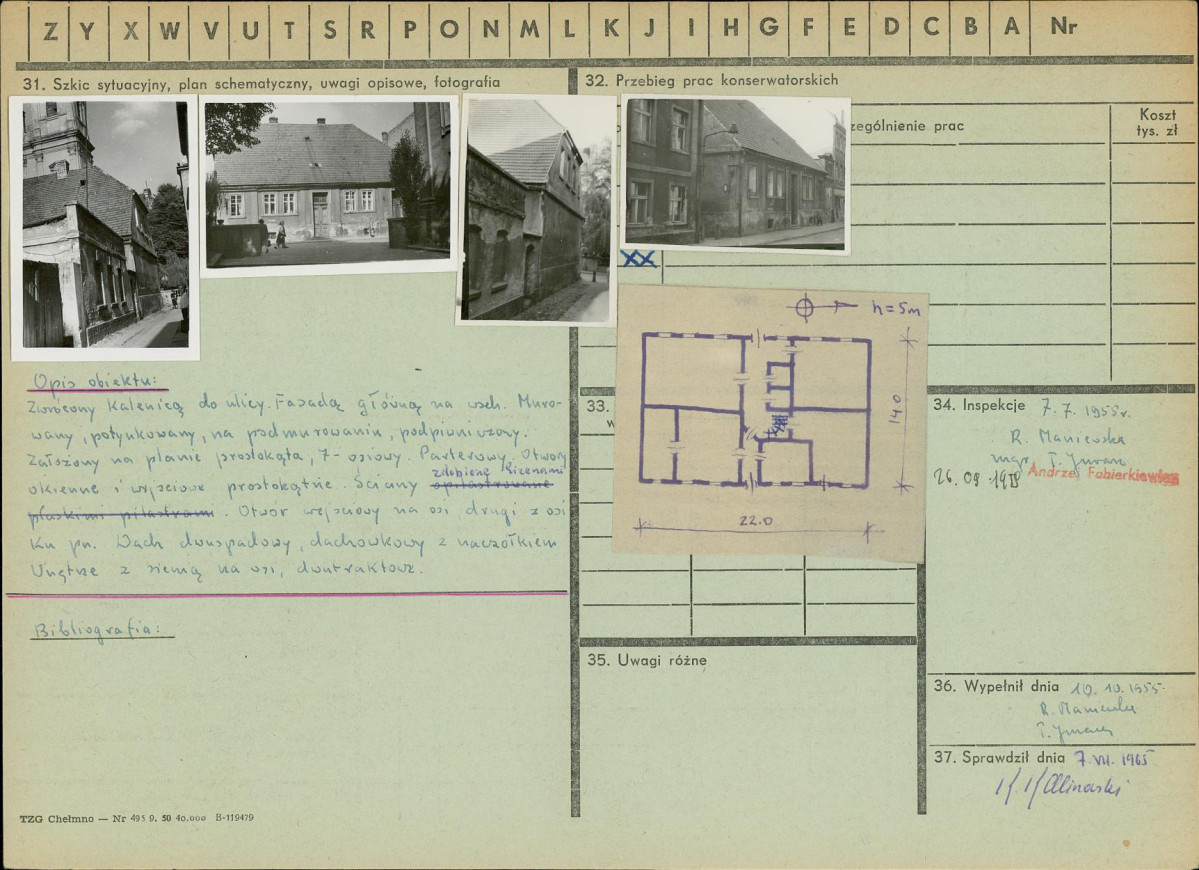 Z Y X W V U T S R P O N M L K J I H G F E D C B A Nr
31. Szkic sytuacyjny, plan schematyczny, uwagi opisowe, fotografia
Opis obiektu:
Zwrócony Kalenicą do ulicy. Fasadą główną na wsch. Muro-
wany, potynkowany, na podmurowaniu, podpiwniczony.
Założony na planie prostokąta, 7-osiowy. Parterowy. Otwory
zdobione lizenami
okienne i wejściowe prostokątne. Ściany opilastrowane
płaskimi pilastrami. Otwór wejściowy na osi, drugi z osi
Ku pn. Dach dwuspadowy, dachówkowy z naczółkiem
Wnętrze z sienią na osi, dwutraktowe.
Bibliografia:
TZG Chełmno — Nr 495 9. 50 40.000 B-119479
32. Przebieg prac konserwatorskich
zególnienie prac
Koszt
tys. zł
XX
h=5m
14.0
22.0
33.
w
34. Inspekcje 7.7.1955r.
R. Maniewska
mgr. T.
26.09.19
Andrzej Fabierkiewicz
35. Uwagi różne
36. Wypełnił dnia 10.10.1955.
R. Maniewska
T.
37. Sprawdził dnia 7.VII.1965
K. Kalinowski